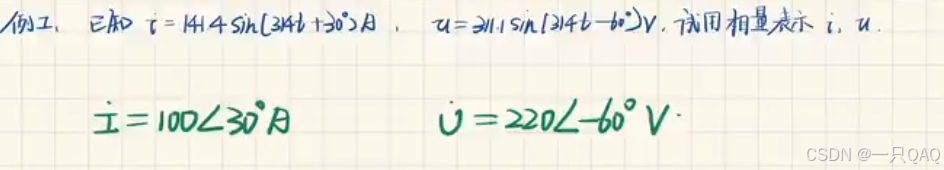 例1. 已知 i=141.4sin(314t+30°)A, u=311.1sin(314t-60°)V. 试用相量表示 i, u.
İ=100∠30°A U̇=220∠-60°V.
CSDN @一只QAQ